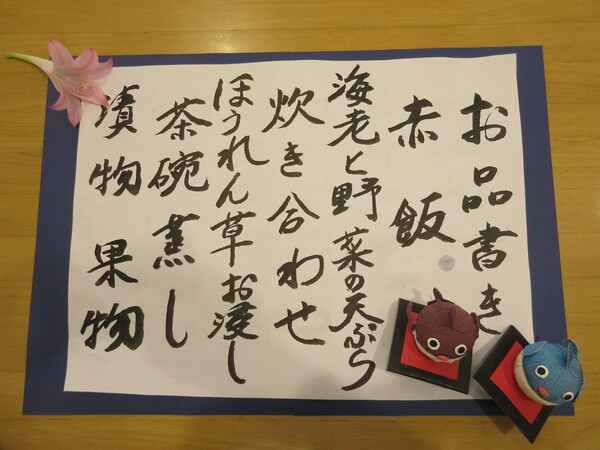 お品書き
赤飯
海老と野菜の天ぷら
炊き合わせ
ほうれん草お浸し
茶碗蒸し
漬物 果物